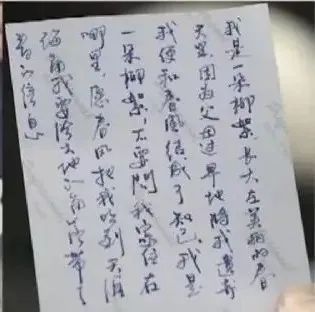 我是一朵柳絮,长大在美丽的春
天里,因为父母过早地将我遗弃
我便和春风结成了知己,我是
一朵柳絮,不要问我家住在
哪里,愿春风把我吹到天涯
海角我要给大地的角落带去
春的信息